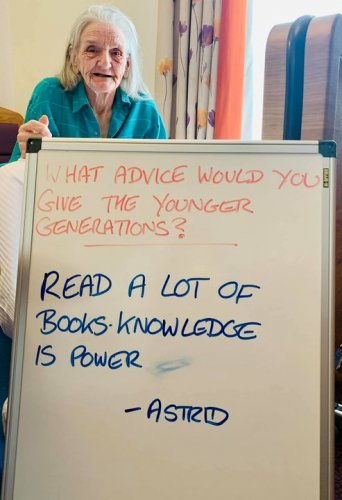 WHAT ADVICE WOULD YOU
GIVE THE YOUNGER
GENERATIONS?
READ A LOT OF
BOOKS. KNOWLEDGE
IS POWER
- ASTRID